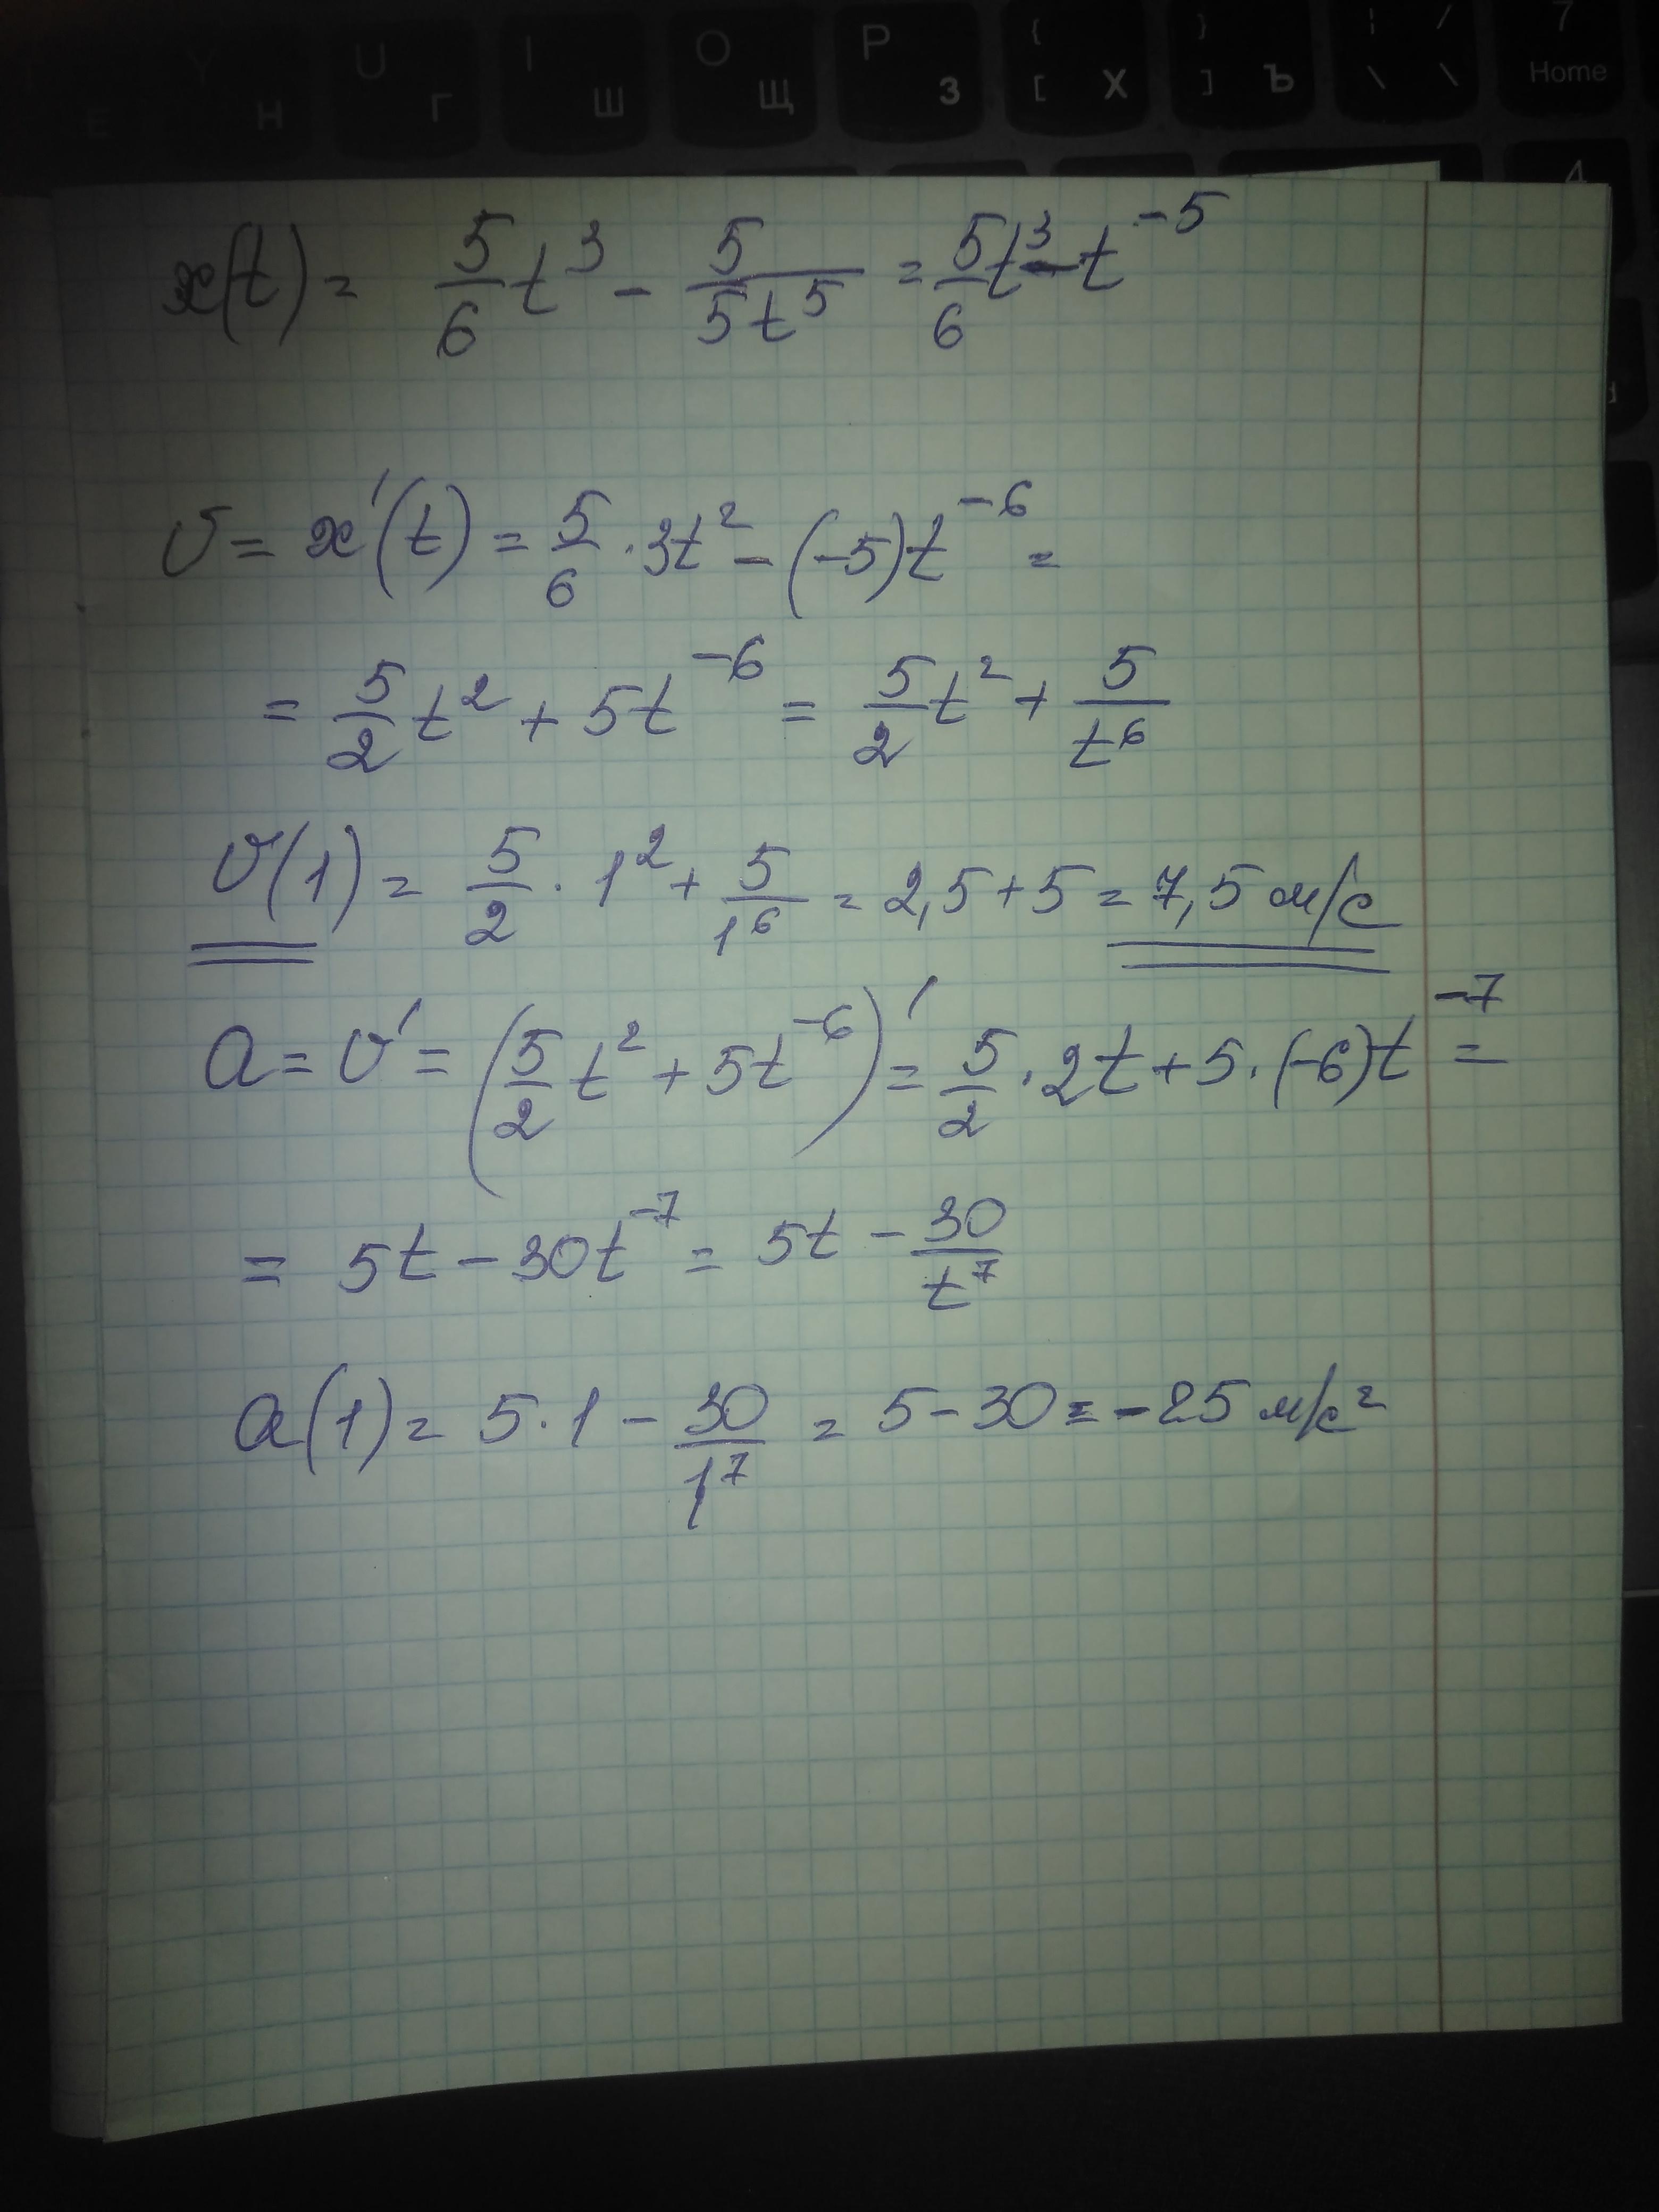 Y U I O P { } | / 7
E Н Г Ш Щ З [ Х ] Ъ \ \ Home
4
x(t) = 5/6 t³ - 5/5t⁵ = 5/6 t³ - t⁻⁵
υ = x'(t) = 5/6 · 3t² - (-5)t⁻⁶ =
= 5/2 t² + 5t⁻⁶ = 5/2 t² + 5/t⁶
υ(1) = 5/2 · 1² + 5/1⁶ = 2,5 + 5 = 7,5 м/с
a = υ' = (5/2 t² + 5t⁻⁶)' = 5/2 · 2t + 5 · (-6)t⁻⁷ =
= 5t - 30t⁻⁷ = 5t - 30/t⁷
a(1) = 5 · 1 - 30/1⁷ = 5 - 30 = -25 м/с²